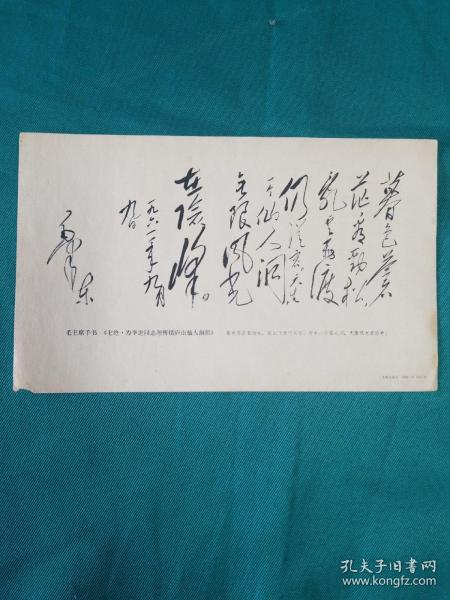 暮色蒼
茫看劲松
乱云飞渡
仍從容天生
一个仙人洞
无限風光
在險峰。
一九六一年九月
九日
毛泽东
毛主席手书 《七绝·为李进同志题所摄庐山仙人洞照》 暮色苍茫看劲松，乱云飞渡仍从容。天生一个仙人洞，无限风光在险峰。
孔夫子旧书网
www.kongfz.com